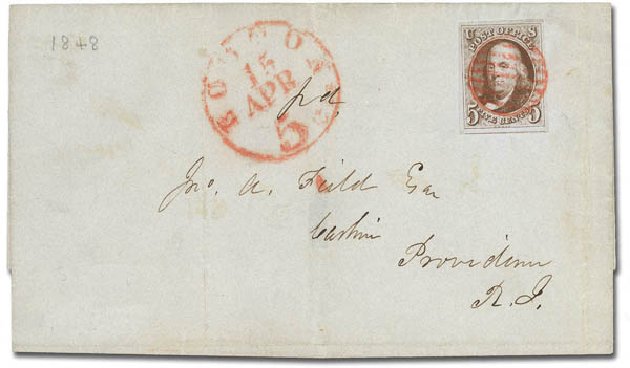 1848
15
APR
5
pd
U S
POST OFFICE
5 FIVE CENTS 5
Jno. A. Field Esq
Cashier
Providence
R. I.